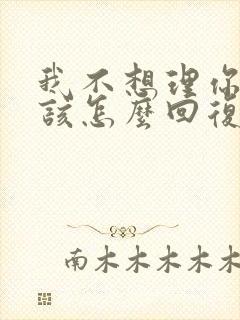 我不想理你
該怎麼回復
南木木木木